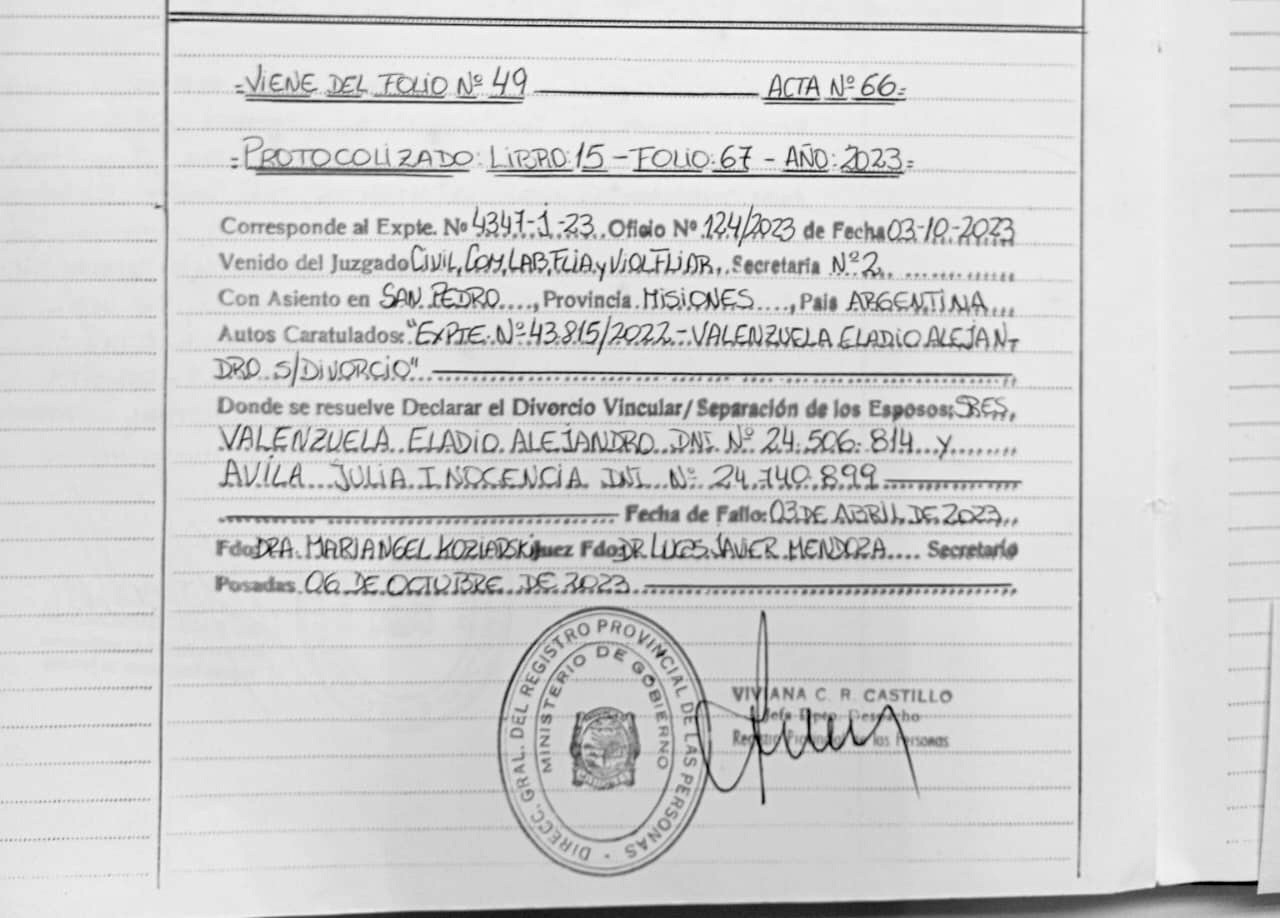 =VIENE DEL FOLIO Nº 49 ACTA Nº 66=
=PROTOCOLIZADO: LIBRO: 15 - FOLIO: 67 - AÑO: 2023=
Corresponde al Expte. Nº 4347-1-23 Oficio Nº 124/2023 de Fecha 03-10-2023
Venido del Juzgado Civil, COM, LAB, FLIA, y VIOL FLIAR, Secretaria Nº 2
Con Asiento en SAN PEDRO, Provincia MISIONES, Pais ARGENTINA
Autos Caratulados: "EXPTE. Nº 43815/2022 - VALENZUELA ELADIO ALEJAN-
DRO S/DIVORCIO"
Donde se resuelve Declarar el Divorcio Vincular/Separación de los Esposos: SRES,
VALENZUELA ELADIO ALEJANDRO DNI Nº 24.506.814 y
AVILA JULIA INOCENCIA DNI Nº 24.740.899
Fecha de Fallo: 03 DE ABRIL DE 2023
Fdo DRA. MARIANGEL KOZIARSKI Juez Fdo DR LUCAS JAVIER MENDOZA Secretario
Posadas 06 DE OCTUBRE DE 2023
DIRECC. GRAL. DEL REGISTRO PROVINCIAL DE LAS PERSONAS
MINISTERIO DE GOBIERNO
VIVIANA C. R. CASTILLO
Jefa Dpto. Despacho
Registro Provincial de las Personas